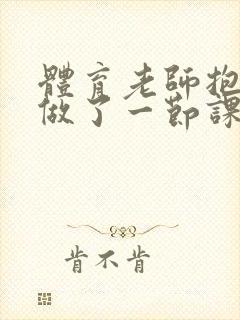 體育老師抱
做了一節課
肯不肯